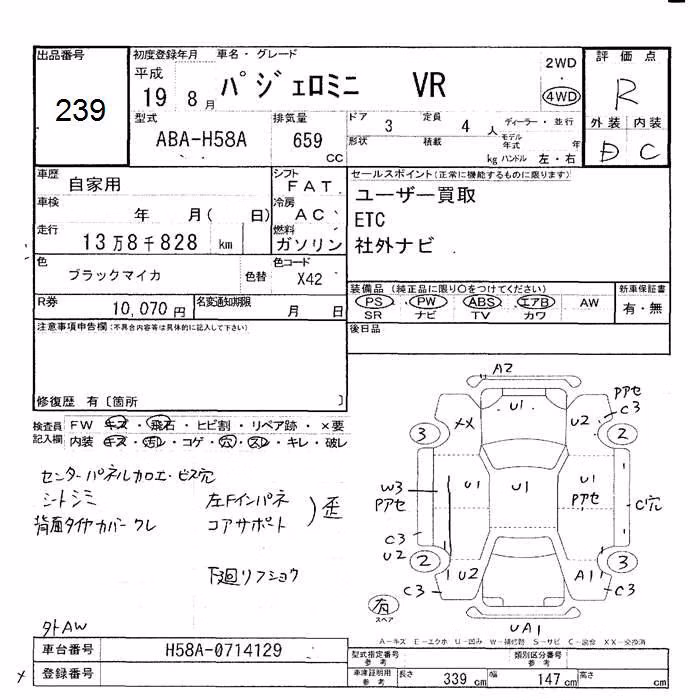 出品番号
239
初度登録年月
平成
19 8月
車名・グレード
パジェロミニ VR
2WD
・
4WD
評価点
R
外装 内装
D C
型式
ABA-H58A
排気量
659
CC
ドア
3
定員
4 人
ディーラー・並行
形状
積載
kg
モデル年式
年
ハンドル 左・右
車歴
自家用
シフト
FAT
車検
年 月( 日)
冷房
AC
走行
13万8千828 km
燃料
ガソリン
色
ブラックマイカ
色替
色コード
X42
R券
10,070円
名変通知期限
月 日
セールスポイント(正常に機能するものに限ります)
ユーザー買取
ETC
社外ナビ
装備品 (純正品に限り○をつけてください)
PS PW ABS エアB AW
SR ナビ TV カワ
新車保証書
有・無
後日品
注意事項申告欄(不具合内容等は具体的に記入して下さい)
修復歴 有〔箇所 〕
検査員記入欄
FW キズ・飛石・ヒビ割・リペア跡・×要
内装 キズ・汚レ・コゲ・穴・スレ・キレ・破レ
センターパネルカロエ・ビス穴
シートシミ
背面タイヤカバークレ
左Fインパネ
コアサポート
)歪
下廻リフショウ
外AW
A2
U1
XX
U2
PアセC3
3
2
U1
U1
U1
Pアセ
W3
Pアセ
C穴
C3
U2
2
3
U2
A1
C3
C3
有
スペア
UA1
A-キズ E-エクボ U-凹み W-補修跡 S-サビ C-腐蝕 XX-交換済
車台番号
H58A-0714129
登録番号
型式指定番号
参考
類別区分番号
参考
車庫証明用
参考
長さ
339 cm
幅
147 cm
高さ
cm